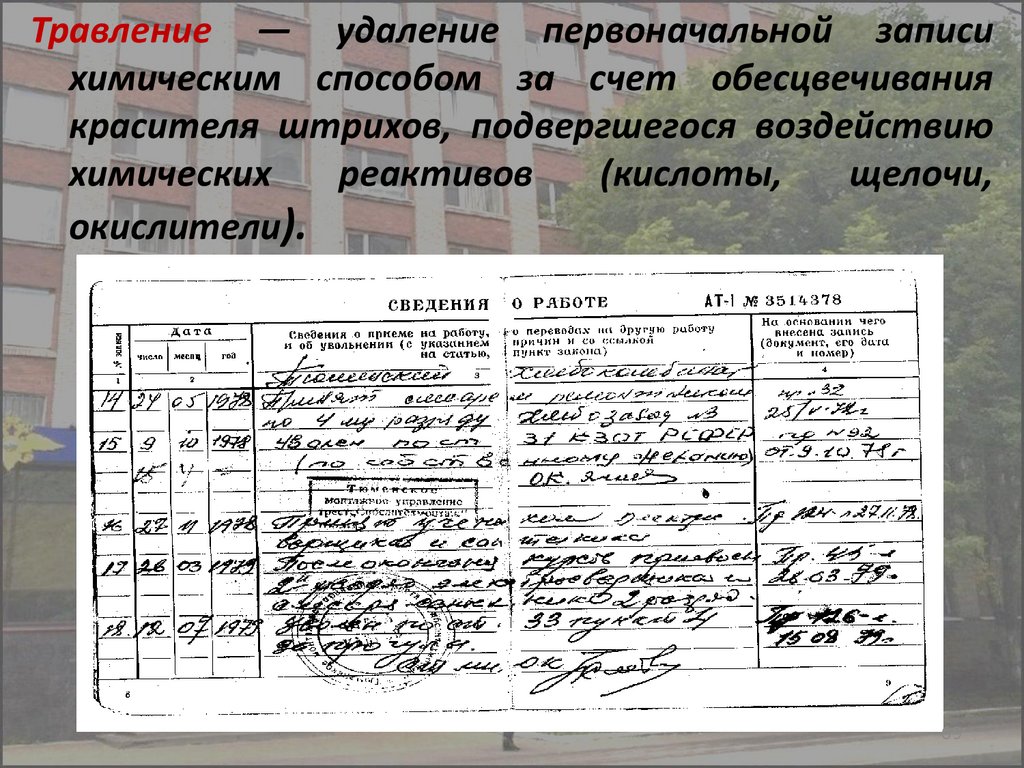 Травление — удаление первоначальной записи
химическим способом за счет обесцвечивания
красителя штрихов, подвергшегося воздействию
химических реактивов (кислоты, щелочи,
окислители).
СВЕДЕНИЯ О РАБОТЕ АТ-I № 3514378
№ записи
Дата
число месяц год
Сведения о приеме на работу, о переводах на другую работу
и об увольнении (с указанием причин и со ссылкой
на статью, пункт закона)
На основании чего
внесена запись
(документ, его дата
и номер)
1 2 3 4
Тюменский Хлебокомбинат
14 24 05 1978 Принят слесарем ремонтником пр. 32
по 4 му разряду Хлебозавод №3
15 9 10 1978 Уволен по ст 31 КЗОТ РСФСР пр №92
(по собственному желанию) от 9.10.78г
ОК.
Тюменское
монтажное управление
16 27 11 1978
Пр 124-л 27.11.78.
17 26 03 1979 После окончания курсов присвоен Пр. 45-л
2й разряд электросварщика и 28.03.79.
2 разряд.
18 12 07 1979 Уволен по ст. 33 пункт 4 Пр 126-л.
за прогулы. 15 08 79.
ОК
6
9